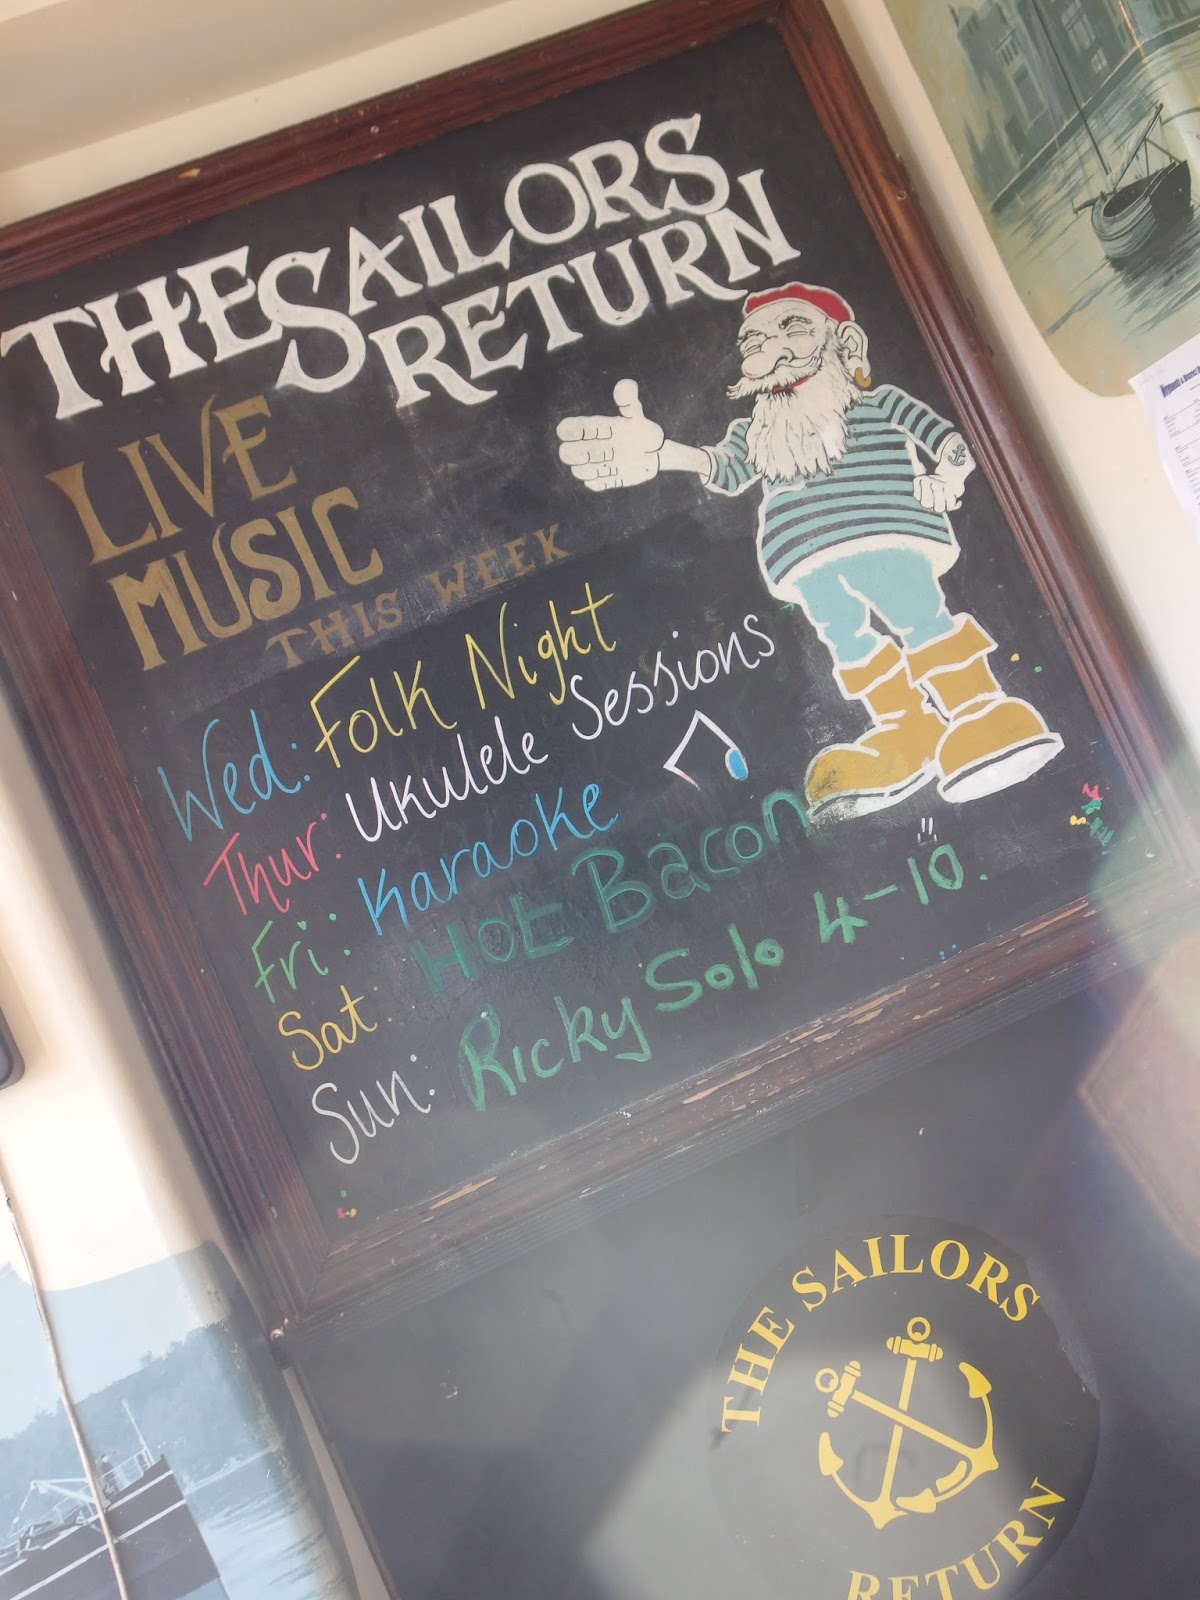 THE SAILORS
RETURN
LIVE
MUSIC
THIS WEEK
Wed: Folk Night
Thur: Ukulele Sessions
Fri: Karaoke
Sat: Hot Bacon
Sun: Ricky Solo 4-10.
THE SAILORS
RETURN